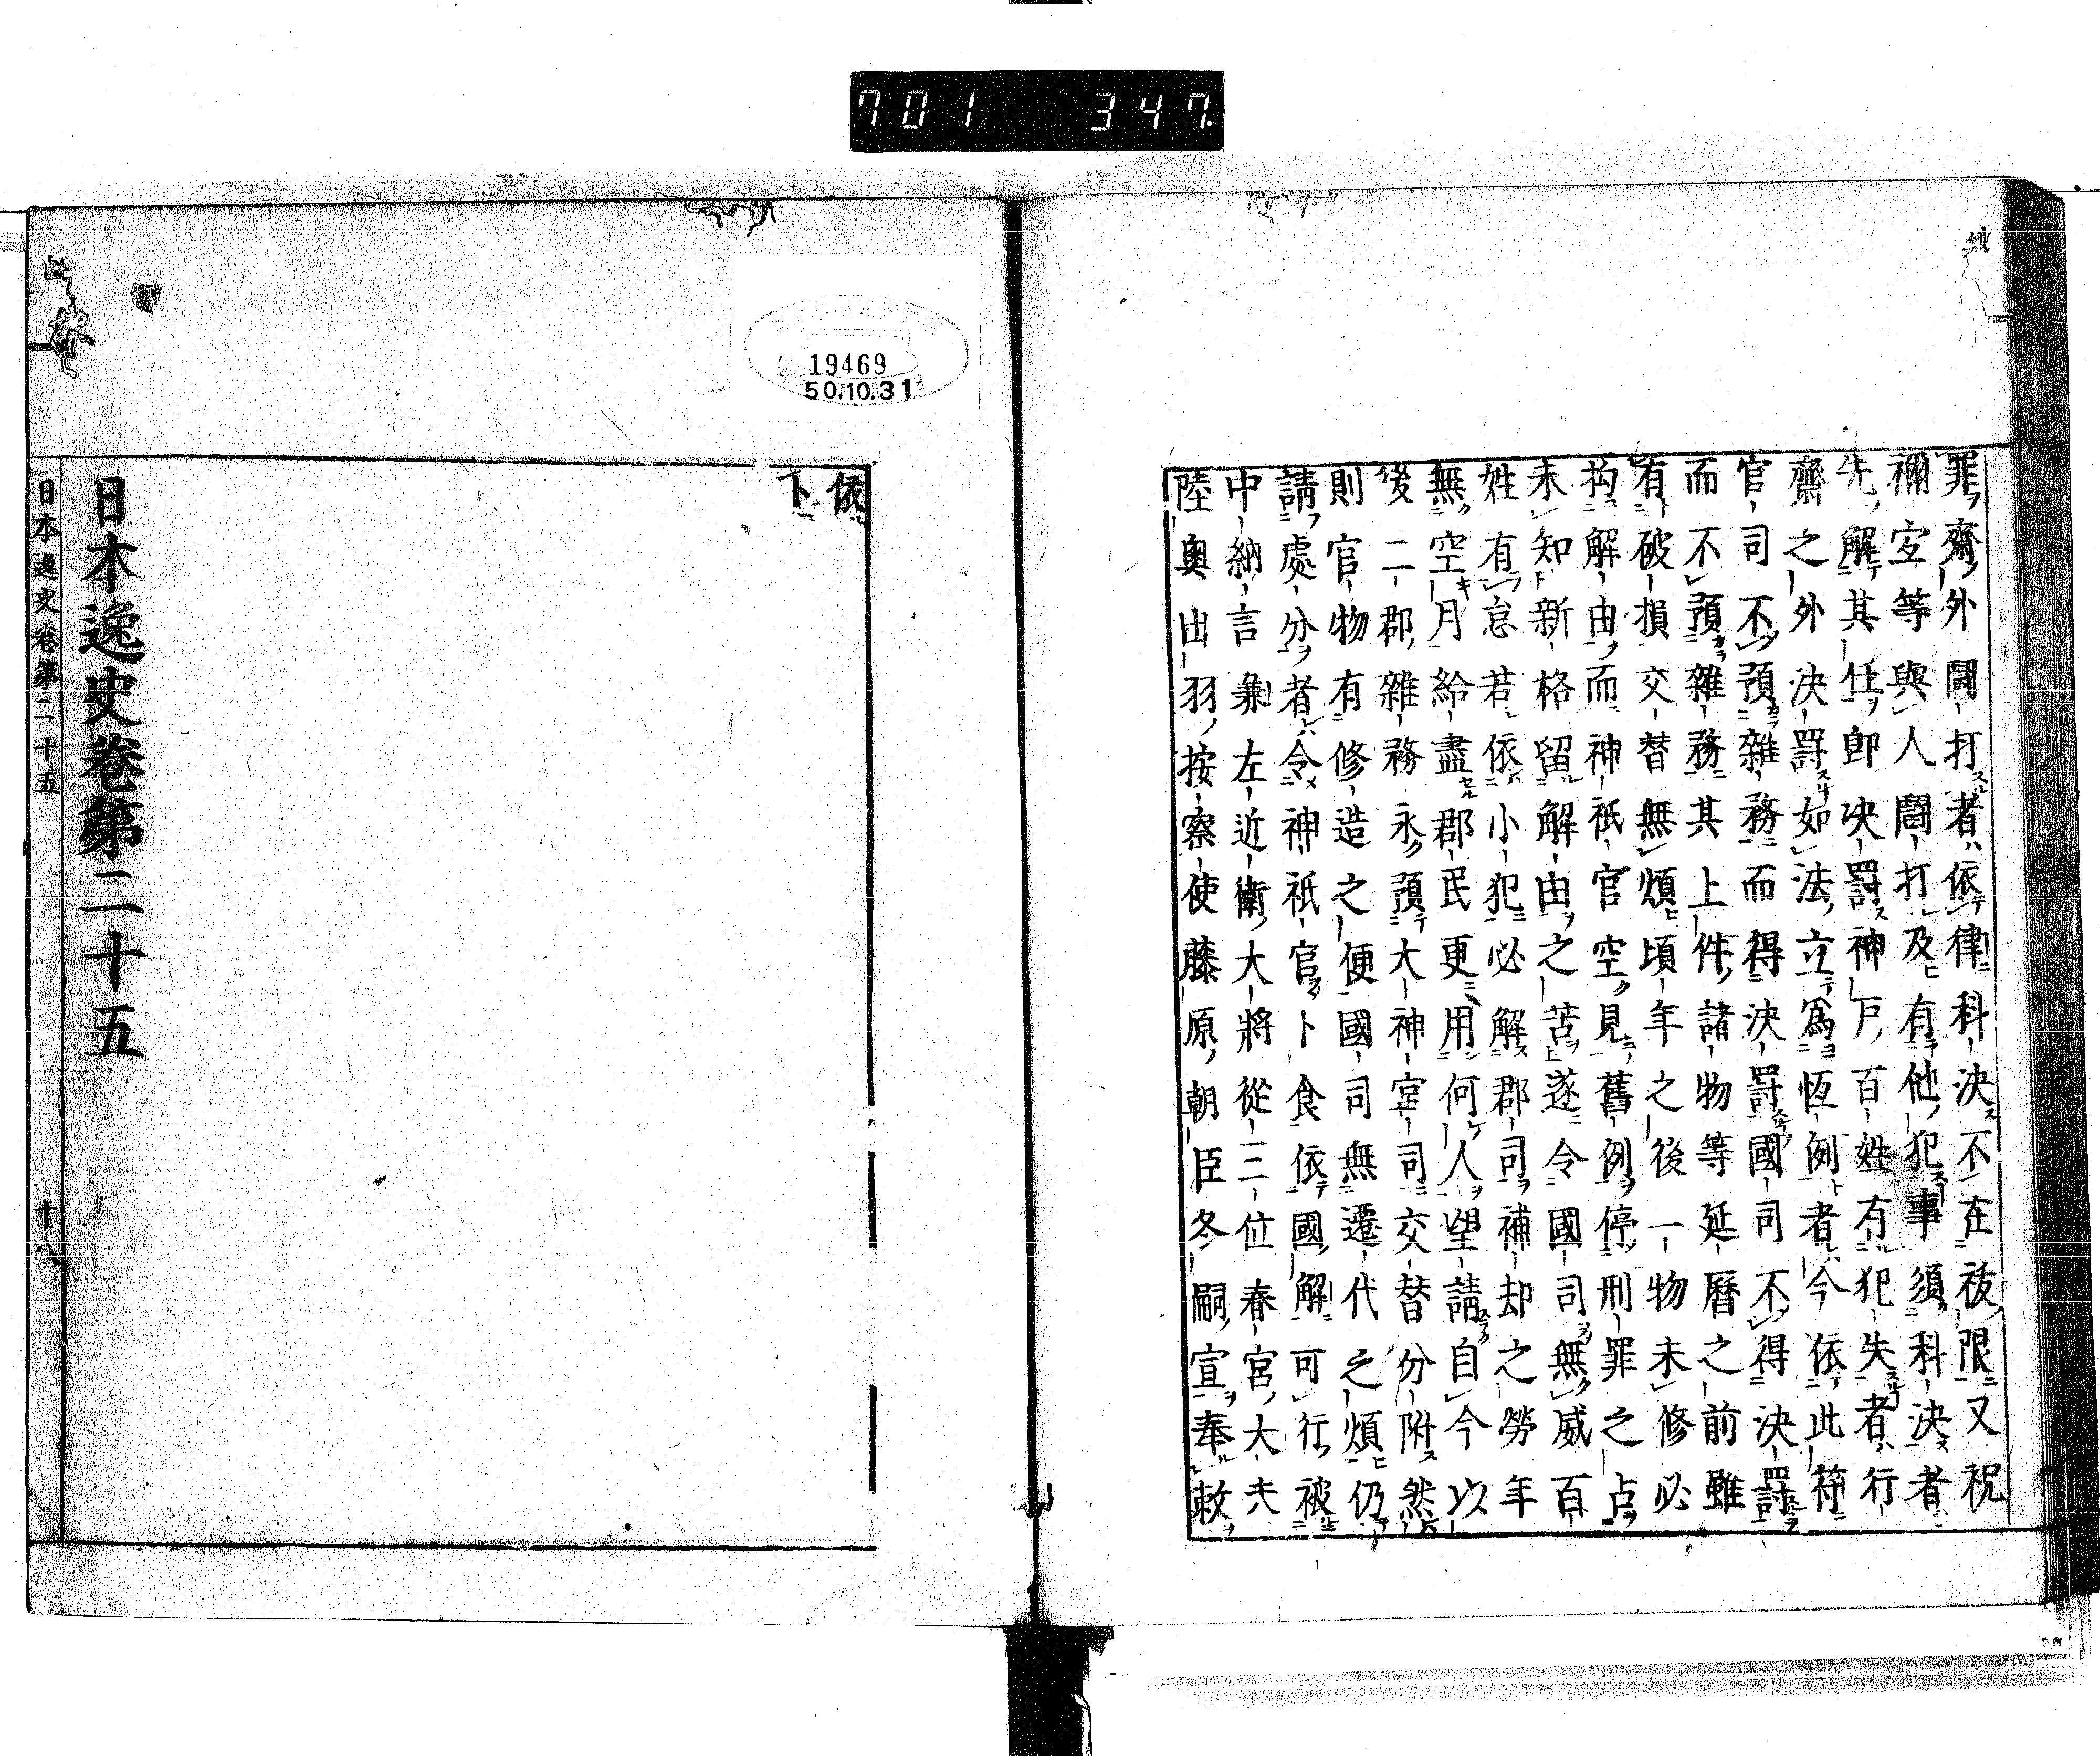 701 347
罪齋外鬪打者依律科決不在祓限又祝
禰宜等與人鬪打及有他犯事須科決者
先解其任卽決罰神戸百姓有犯失者行
齋之外決罰如法立爲恆例者今依此符
官司不預雜務而得決罰國司不得決罰
而不預雜務其上件諸物等延曆之前雖
有破損交替無煩頃年之後一物未修必
拘解由而神祇官空見舊例停刑罪之占
未知新格留解由之苦遂令國司無威百
姓有怠若依小犯必解郡司補却之勞年
無空月給盡郡民更用何人望請自今以
後二郡雜務永預大神宮司交替分附然
則官物有修造之便國司無遷代之煩仍
請處分者令神祇官卜食依國解可行被
中納言兼左近衛大將從三位春宮大夫
陸奧出羽按察使藤原朝臣冬嗣宣奉敕
19469
50.10.31
依
卜
日本逸史卷第二十五
日本逸史卷第二十五 十八